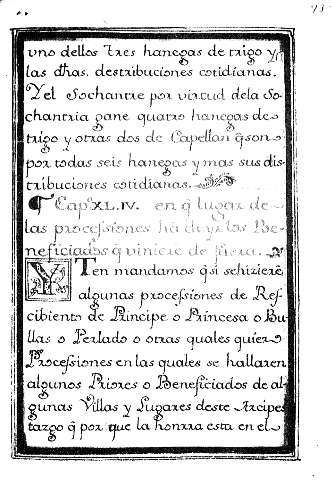 vno dellos tres hanegas de trigo y
las dhas. destribuciones cotidianas.
Y el Sochantre por virtud dela So-
chantria gane quatro hanegas de
trigo y otras dos de Capellan q̃ son
por todas seis hanegas y mas sus dis-
tribuciones cotidianas.
¶ Cap.º XL.IV. en q̃ lugar de
las processiones hã de yr los Be-
neficiados q̃ viniere de fuera.
YTen mandamos q̃ si sehiziere
algunas processiones de Res-
cibiento de Principe o Princesa o Bu-
llas o Perlado o otras quales quier
Processiones en las quales se hallaren
algunos Priores o Beneficiados de al-
gunas Villas y Lugares deste Arcipes
tazgo q̃ por que la honrra esta en el